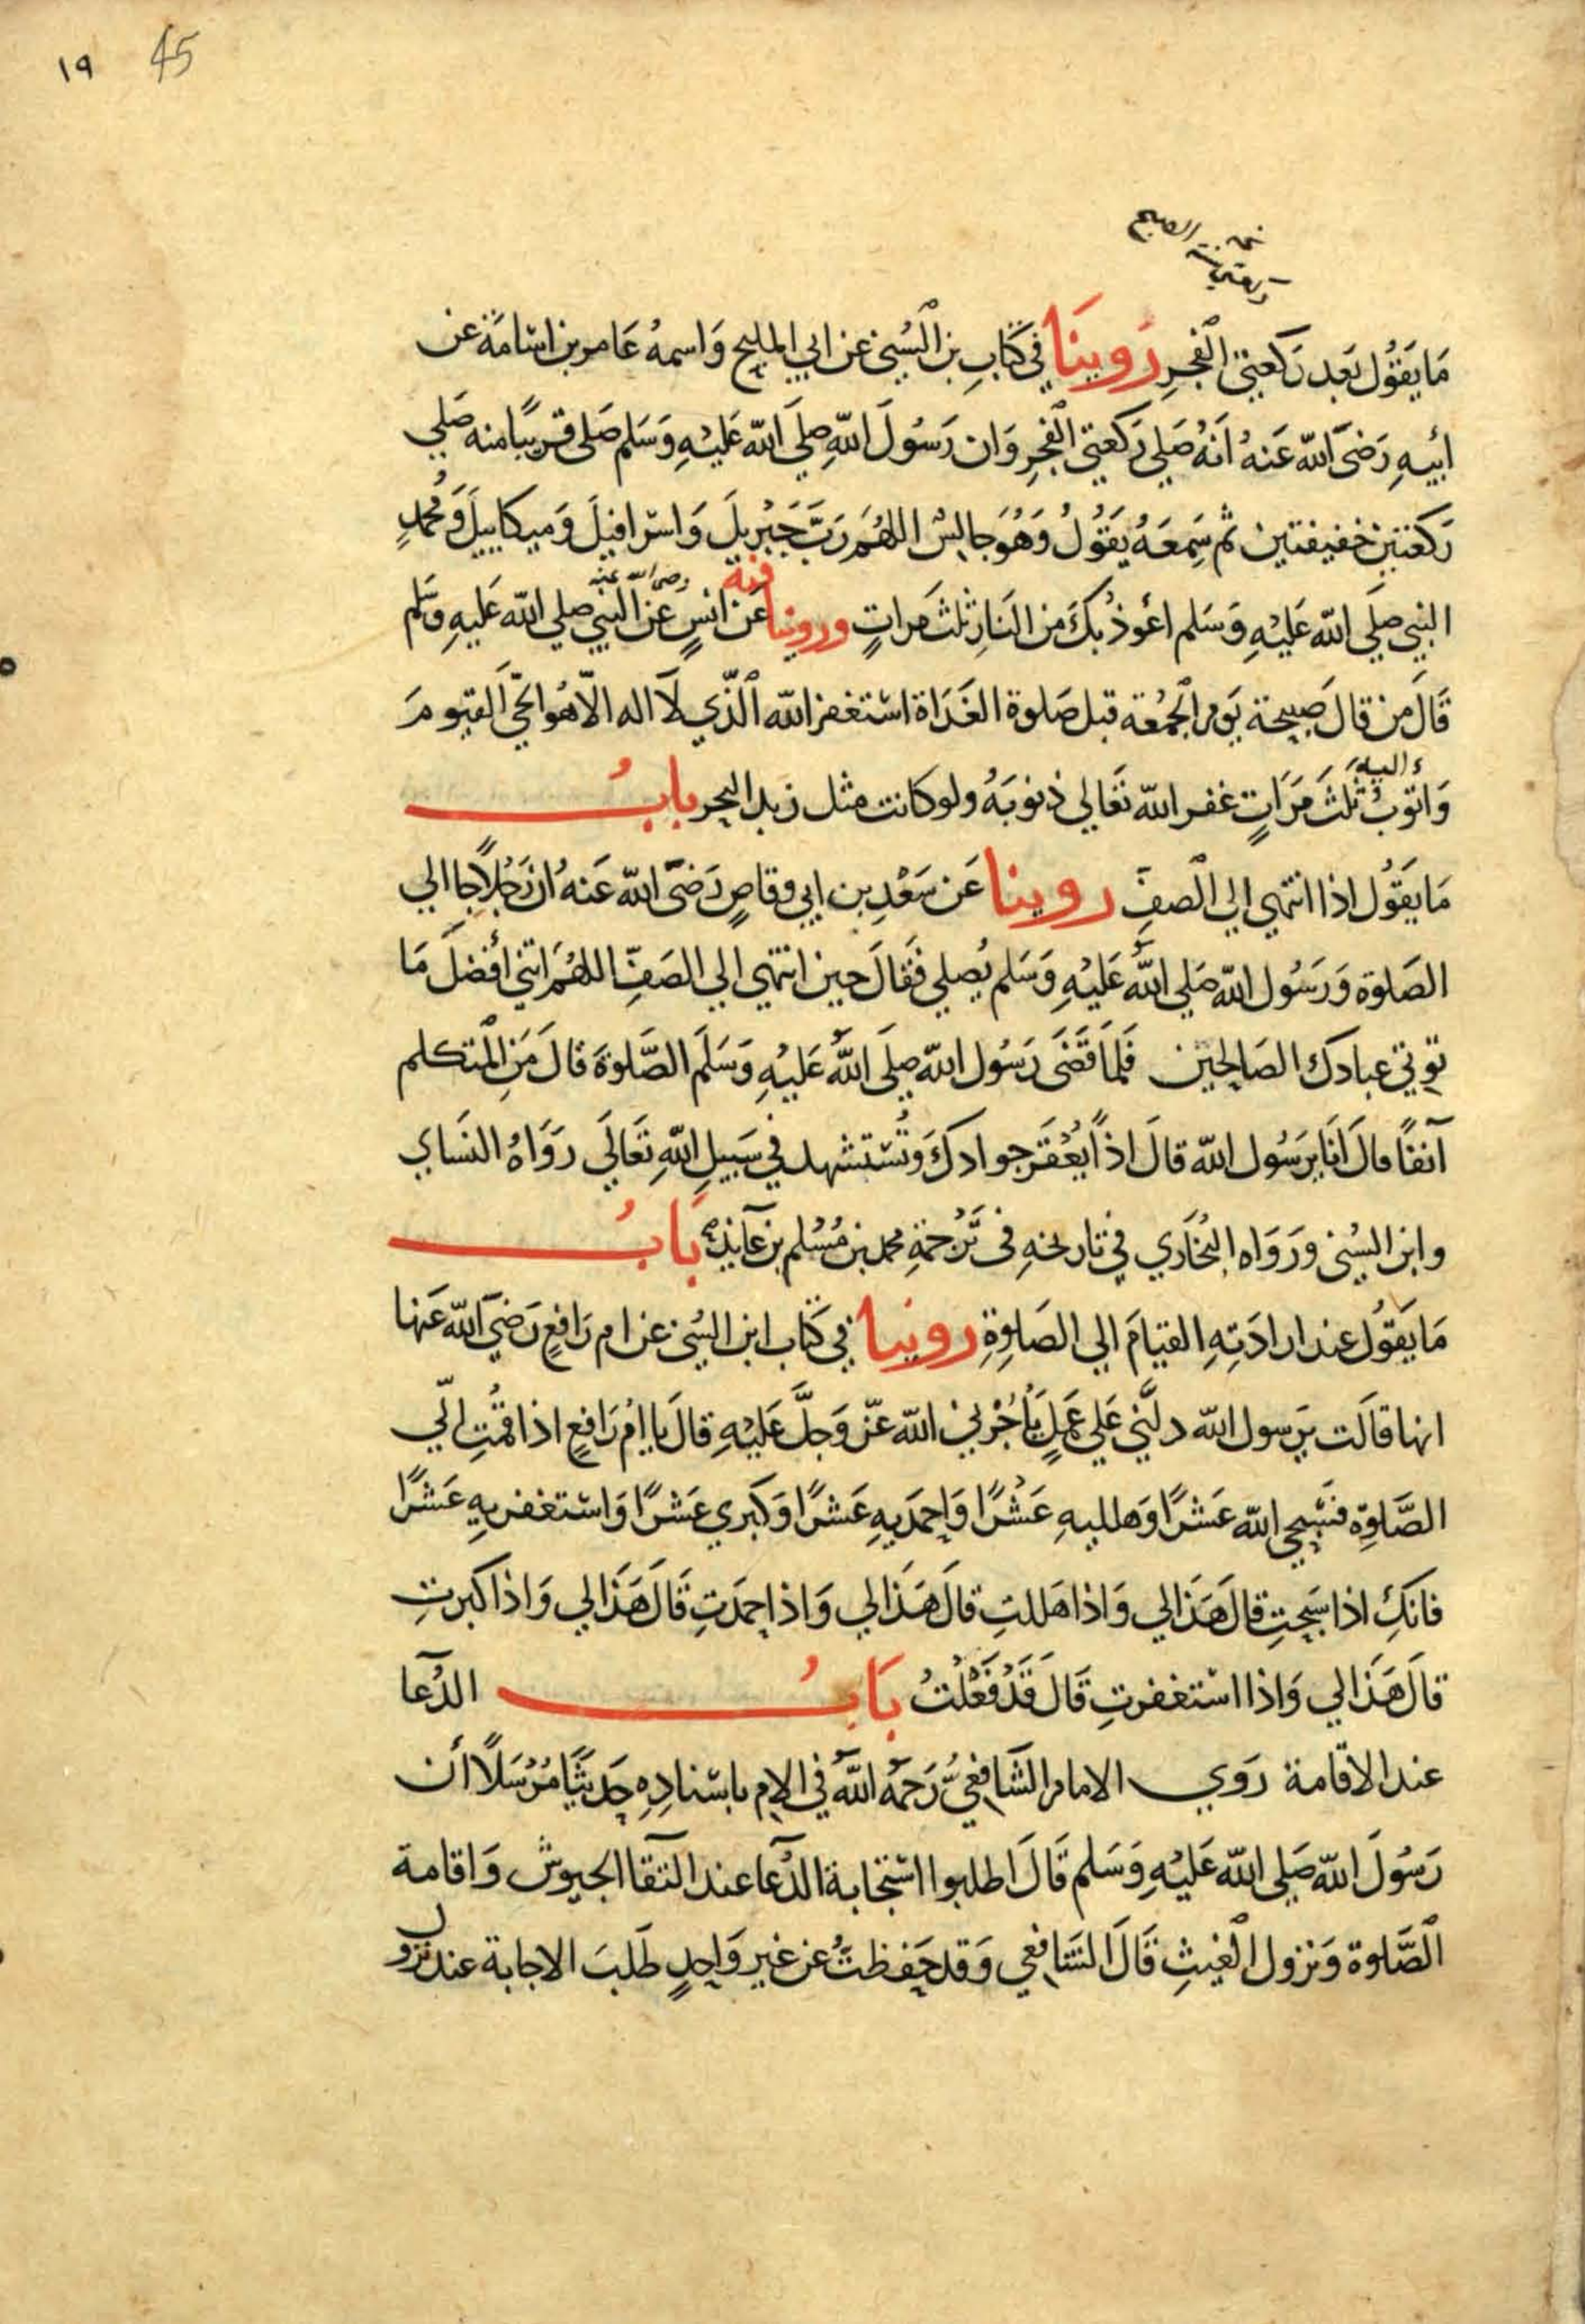 ١٩ 45
ركعتي سنة الصبح
مَا يَقُوُل بَعِد رَكعَتِي الْفَجِرِ رَوينَا في كتَابِ بن السُني عَن ابي المليح وَاسمهُ عَامر بن اسَامَة عن
أبيهِ رَضىَ الله عَنهُ اَنهُ صَلي رَكعتي الْفجرِ وَان رَسُولَ اللهِ صلَي الله عَليْهِ وَسَلم صَلى قريبًا منه صَلي
رَكعَتينِ خفيفتين ثم سَمِعَهُ يَقُوُلُ وَهُوَ جالِسُ اللهُمَ رَبَّ جَبْرِيلَ وَاسرافيلَ وَميكاييلَ وَمُحمدٍ
النبي صلَي الله عَليْهِ وَسَلم اعُوذُ بكَ مِن النَارِ ثلثَ مَراتٍ وروينا فيه عَن انسٍ رضى الله عنه عَن النبي صلي الله عَليهِ وَسَلم
قَالَ مَن قالَ صَبيحة يَوم الجمُعة قبل صَلوة الغَدَاة استغفر الله الَّذي لَا اله الّا هُو الحَيَّ القيومَ
وَاتوُبُ اليه ثَلثَ مَرَاتٍ غفر الله تعَالي ذنوبَهُ ولو كانت مثل زبد البحر بابُ
مَا يقَوُل اذا انتهي الي الْصفِّ روينا عَن سَعْدِ بن ابي وقاصٍ رَضىَ الله عَنهُ ان رَجُلاً جا الي
الصَلوة وَرَسُول الله صَلي اللهُ عَليْهِ وَسَلم يُصلي فقَالَ حين انتهي الي الصَفِّ اللهُمَ اتني أفضلَ مَا
توتي عبادكَ الصَالحين فَلمَا قَضَى رَسُول الله صلَي اللهُ عَليْهِ وَسَلَم الصَّلوةَ قالَ مَن الْمتكلم
آنفًا قالَ اَنَا يرَسُول الله قالَ اذاً يُعْقَر جوادكَ وَتُستشهد في سَبيلِ اللهِ تَعَالَي رَوَاهُ النسَاي
وابن السُني وَرَوَاه البُخَاري في تاريخهِ فى تَرْجمَةِ محمد بن مُسْلم بن عَآيذٍ بَابُ
مَا يقَوُل عند ارادَتِهِ القيامَ الي الصَلوةِ روينا في كتَاب ابن السُني عن ام رَافعٍ رَضيَ الله عَنها
انها قالَت يرَسول الله دلَّني عَلي عَملٍ يَأجُرْني الله عَزّ وَجلَّ عَليْهِ قالَ يا ام رَافعٍ اذا قُمتِ الي
الصَّلوةِ فسَبحي الله عَشرًا وَهلليهِ عَشْرًا وَاحمَديهِ عَشرًا وَكبري عَشرًا وَاستغفريهِ عَشرًا
فانَكِ اذا سَبحتِ قالَ هَذَا لي وَاذا هَللتِ قالَ هَذَا لي وَاذا حمَدتِ قَالَ هَذَا لي وَاذا كبرتِ
قالَ هَذَا لي وَاذا استغفرتِ قَالَ قَدْ فعَلْتُ بَابُ الدُعا
عند الاقامة رَوي الامام الشَافعيُ رَحمَهُ اللهُ في الام باسنادِهِ حَديثًا مُرْسَلًا أن
رَسُولَ الله صَلي الله عَليْهِ وَسَلم قَالَ اطلبوا استجَابة الدُعا عند التقا الجيوش وَاقامة
الصَّلوة وَنزول الْغيثِ قَالَ الشَافعي وَقد حَفظتُ عَن غير وَاحدٍ طَلبَ الاجابة عند نزول